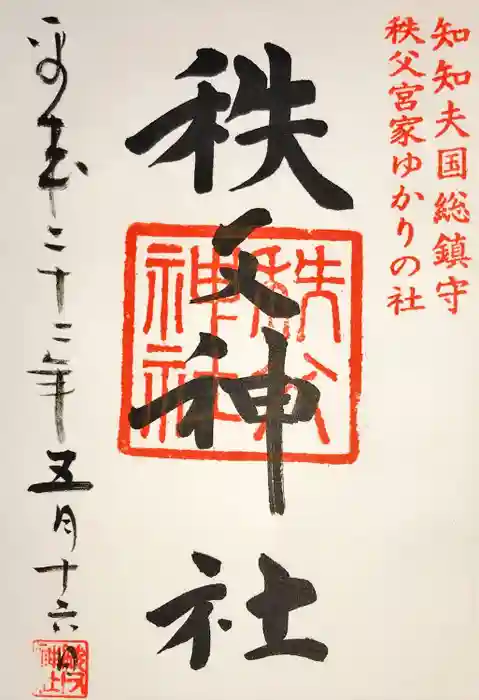 知知夫国総鎮守
秩父宮家ゆかりの社
秩父神社
秩父
神社
平成二十二年五月十六日
秩父
神社